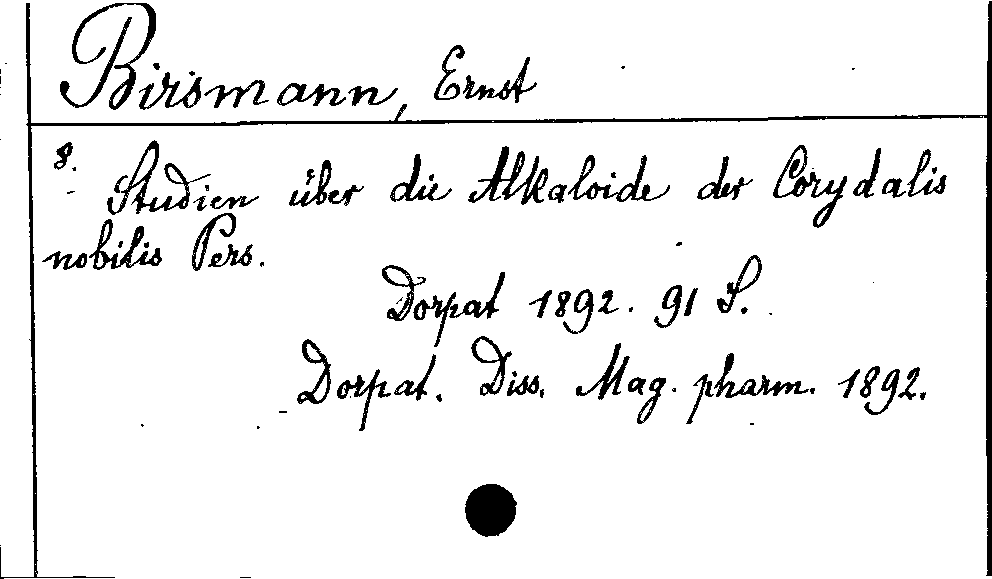 Birsmann, Ernst
8.
Studien über die Alkaloide der Corydalis
nobilis Pers.
Dorpat 1892. 91 S.
Dorpat. Diss. Mag. pharm. 1892.